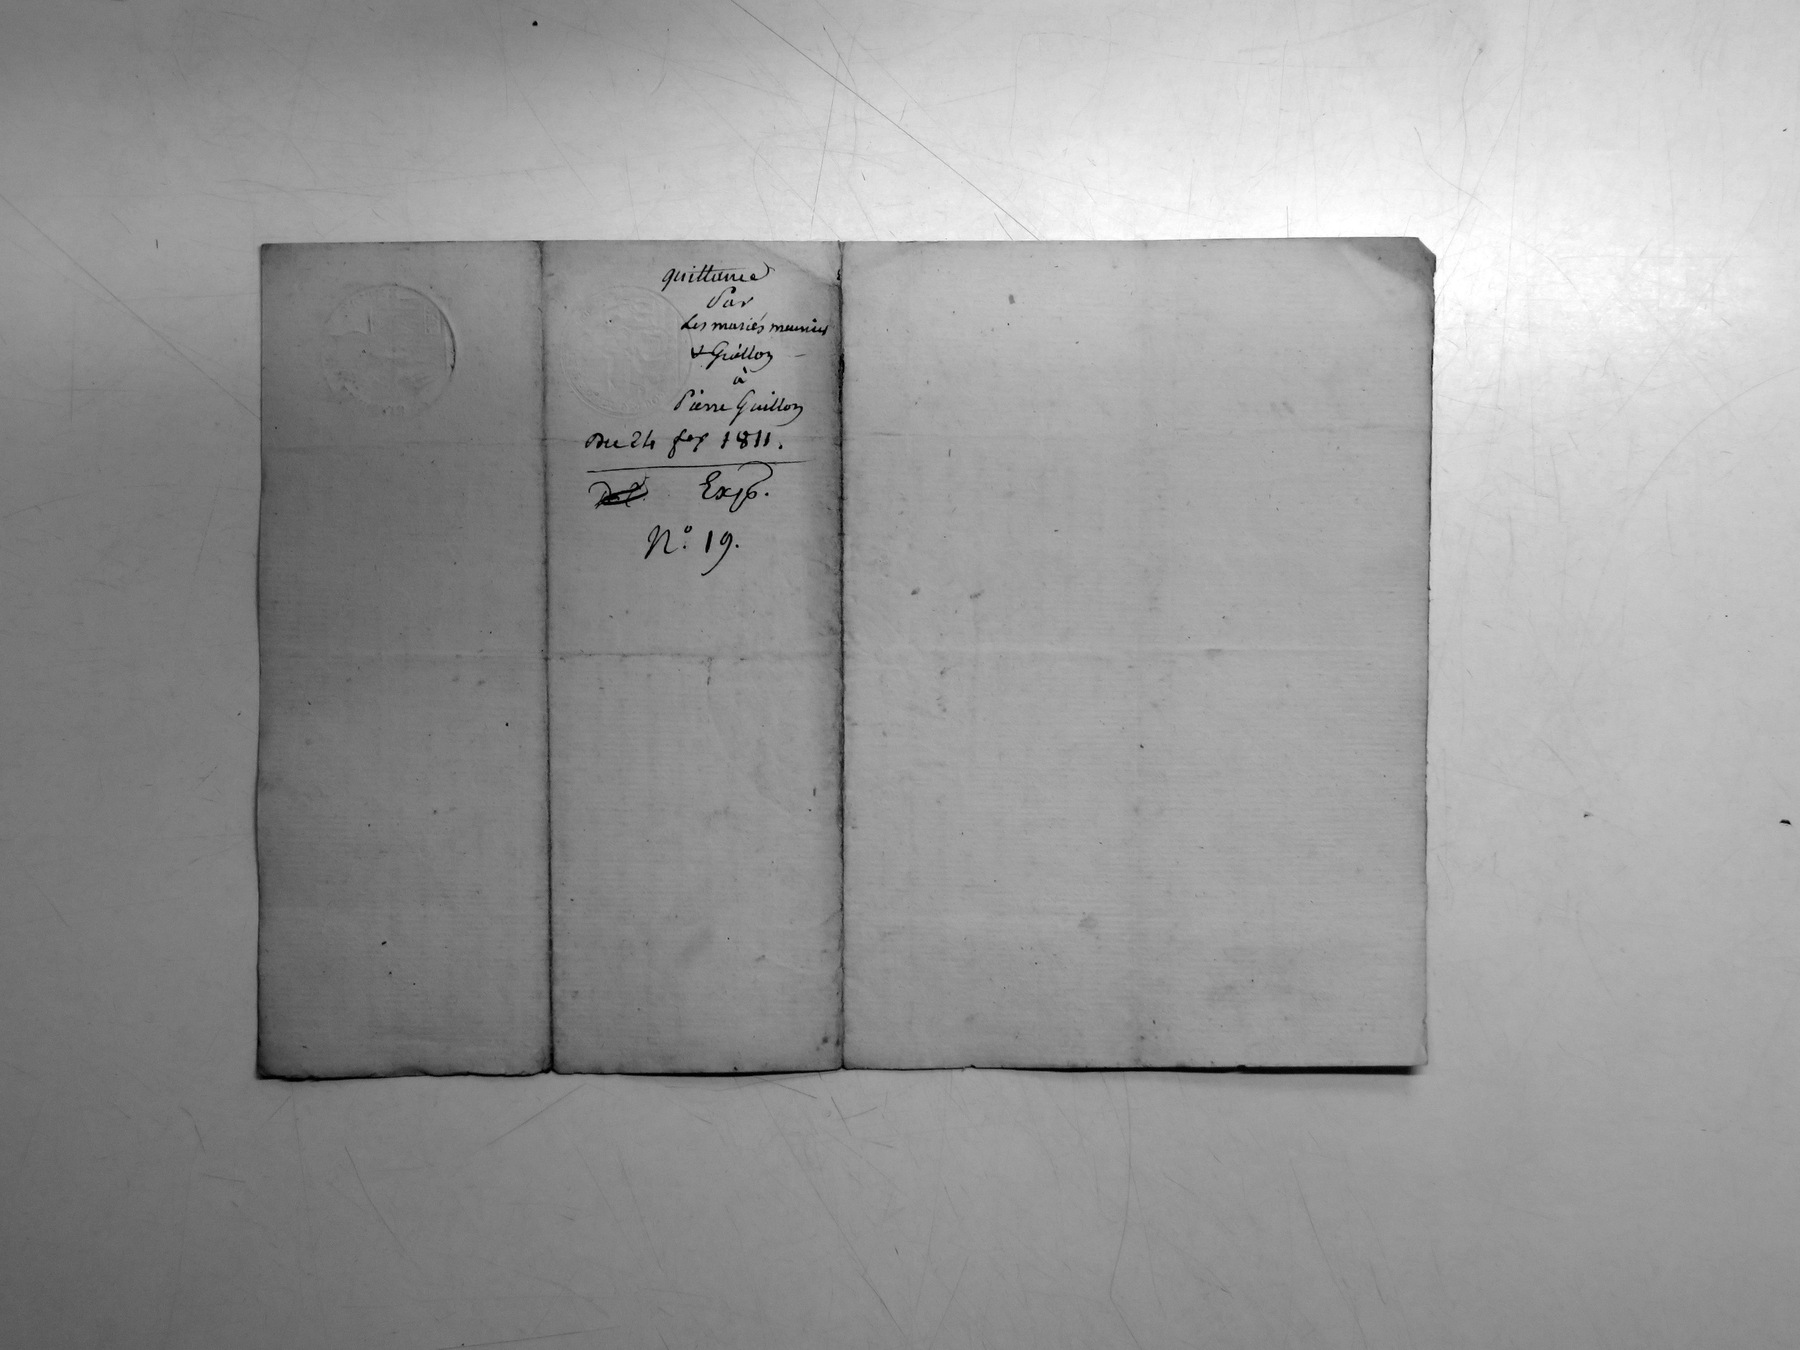 quittance
Par
Les mariés meunier
& Guillon
à
Pierre Guillon
Du 24 1811.
Exp.
N.° 19.